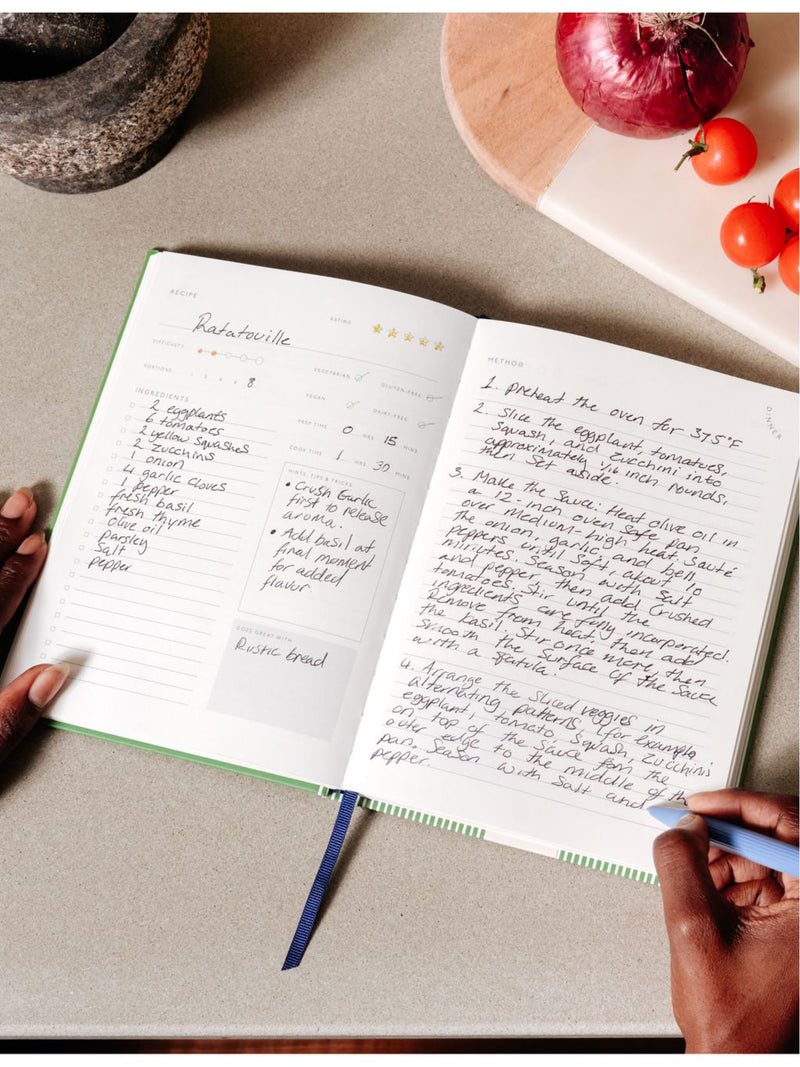 RECIPE
Ratatouille
RATING
DIFFICULTY
PORTIONS
8
VEGETARIAN
GLUTEN-FREE
VEGAN
DAIRY-FREE
PREP TIME 0 HRS 15 MINS
COOK TIME 1 HRS 30 MINS
INGREDIENTS
2 eggplants
6 tomatoes
2 yellow squashes
2 zucchinis
1 onion
4 garlic cloves
1 pepper
fresh basil
fresh thyme
olive oil
parsley
salt
pepper
HINTS, TIPS & TRICKS
• Crush Garlic
first to release
aroma.
• Add basil at
final moment
for added
flavor.
GOES GREAT WITH
Rustic bread
METHOD
DINNER
1. preheat the oven for 375°F
2. Slice the eggplant, tomatoes,
squash, and zucchini into
approximately 1/16 inch rounds,
then set aside.
3. Make the sauce: Heat olive oil in
a 12-inch oven safe pan
over medium-high heat. Sauté
the onion, garlic, and bell
peppers until soft, about 10
minutes. Season with salt
and pepper, then add crushed
tomatoes. Stir until the
ingredients are fully incorporated.
Remove from heat, then add
the basil. Stir once more, then
smooth the surface of the sauce
with a spatula.
4. Arrange the sliced veggies in
alternating patterns, (for example,
eggplant, tomato, squash, zucchini)
on top of the sauce from the
outer edge to the middle of the
pan. Season with salt and
pepper.